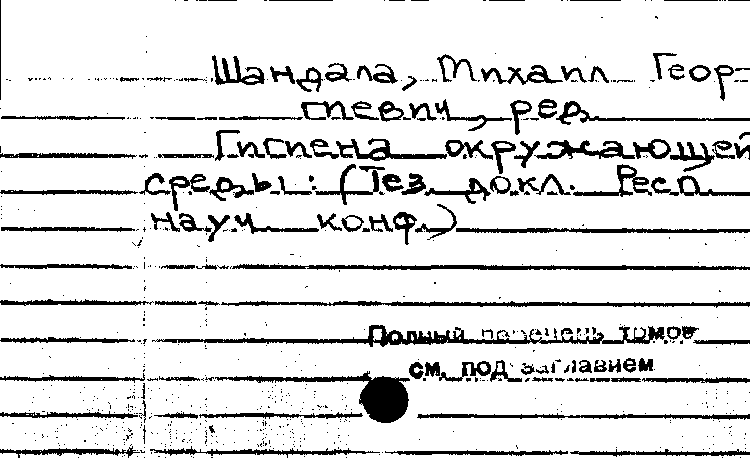 Шандала, Михаил Геор-
гиевич, ред.
Гигиена окружающей
среды: (Тез. докл. Респ.
науч. конф.)
Полный перечень томов
см. под заглавием